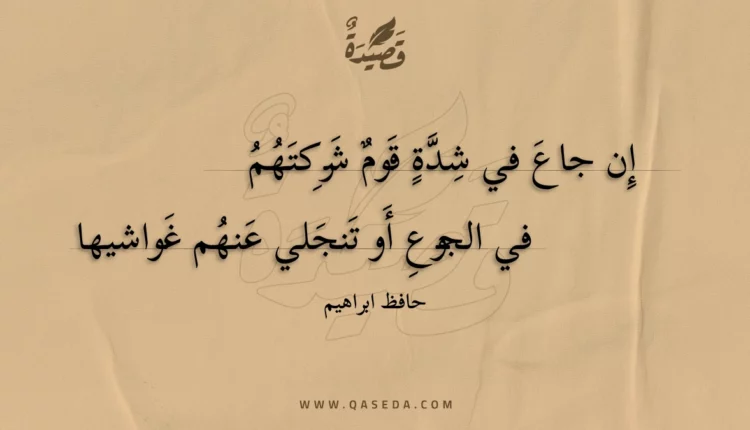 قَصِيدَةٌ
إِن جاعَ في شِدَّةٍ قَومٌ شَرِكتَهُمُ
في الجوعِ أَو تَنجَلي عَنهُم غَواشيها
حافظ ابراهيم
WWW.QASEDA.COM